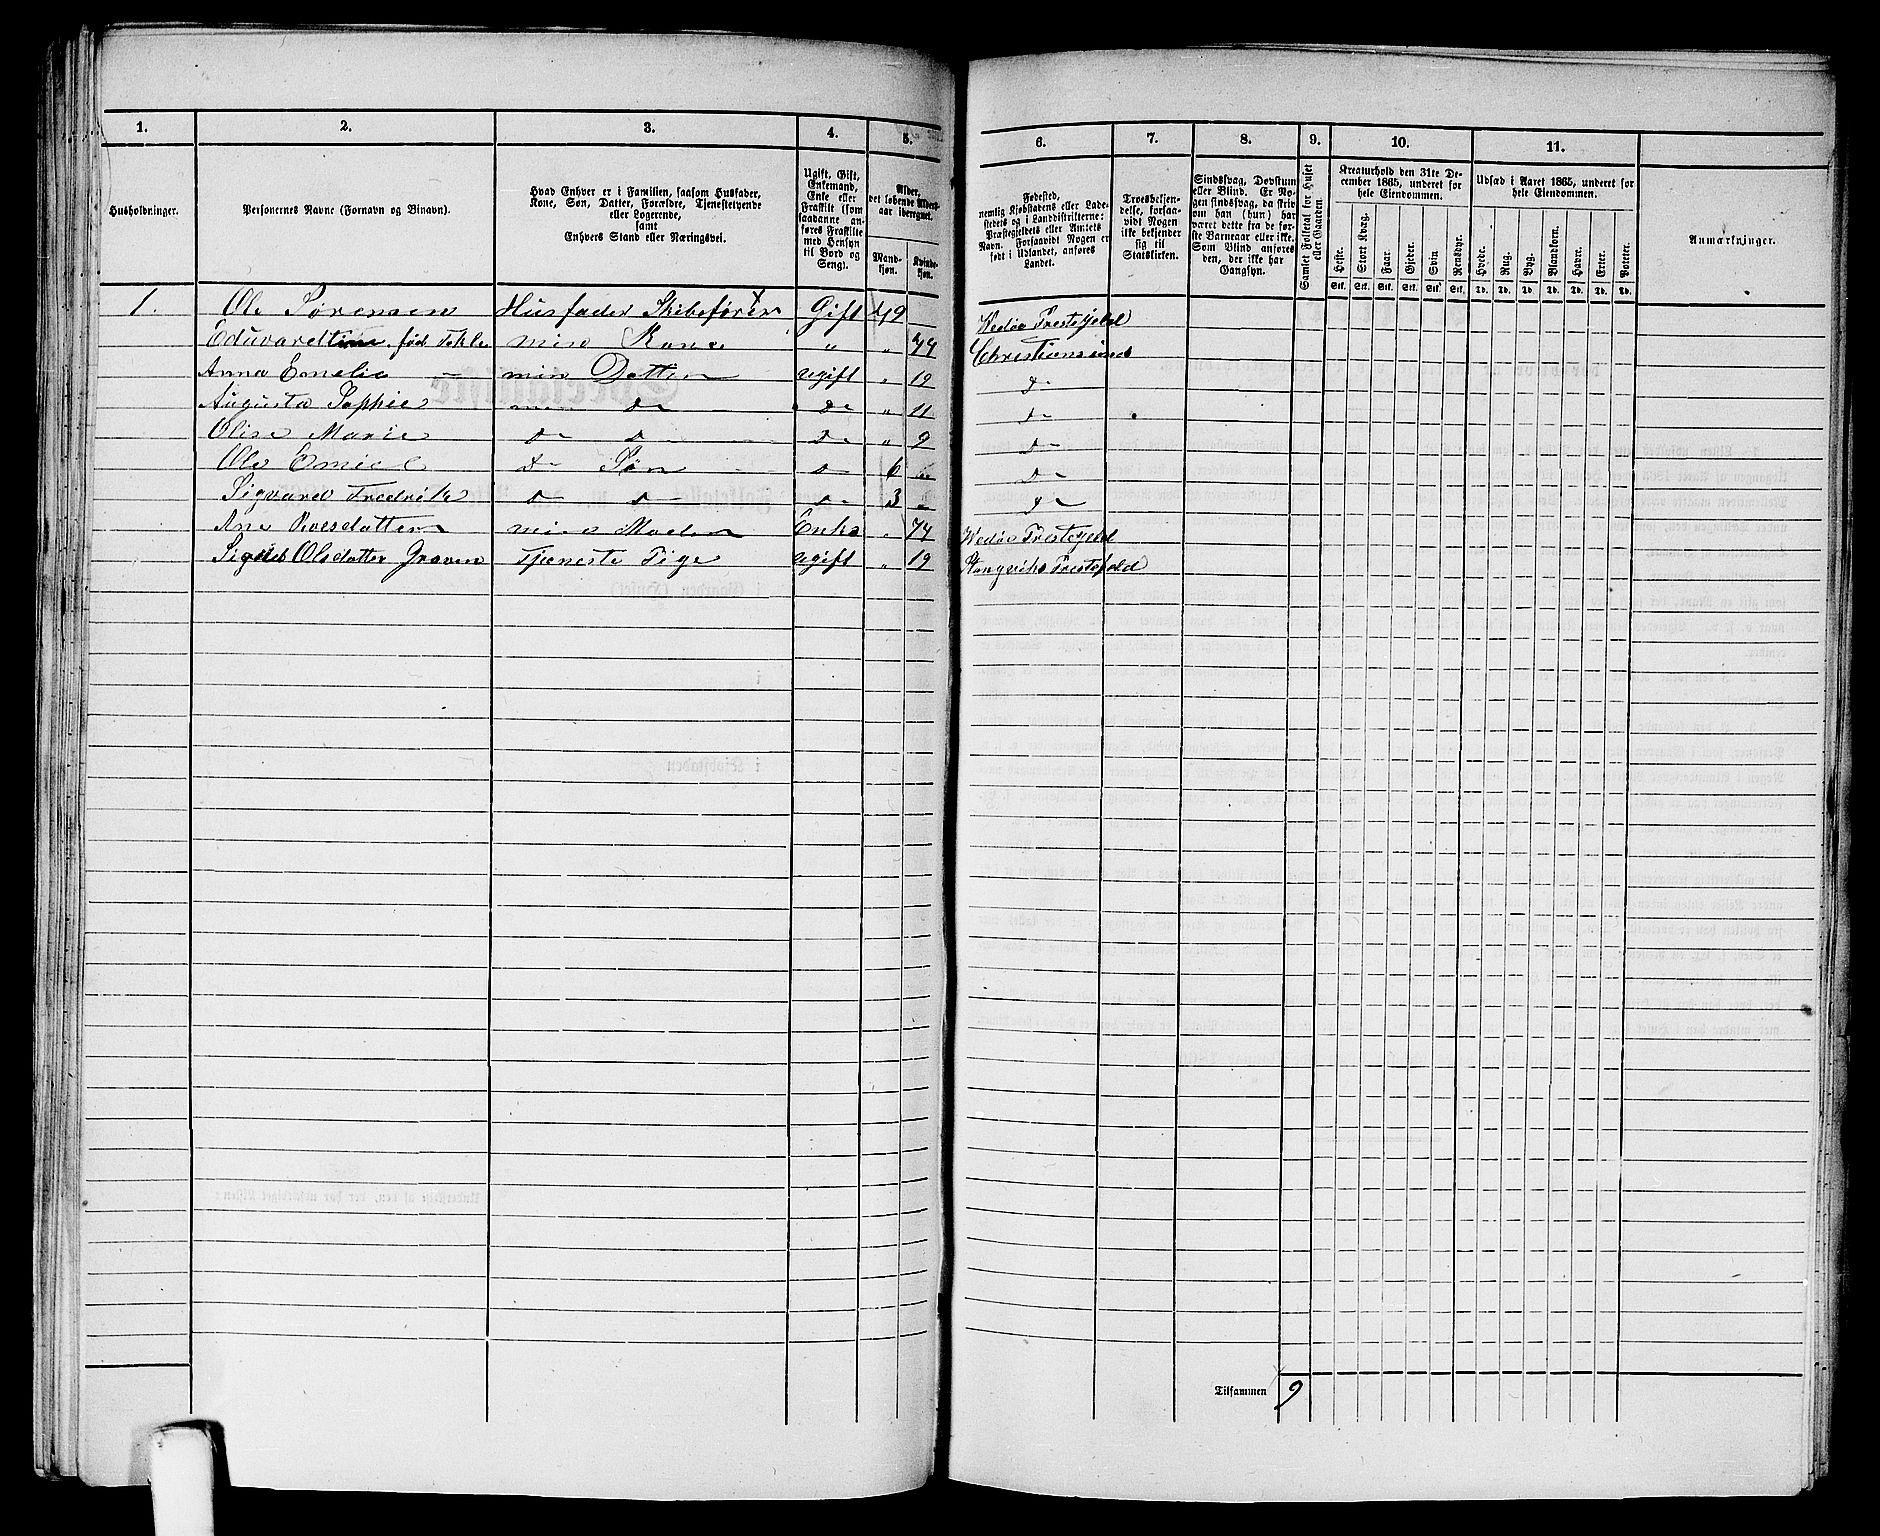 1. 2. 3. 4. 5. 6. 7. 8. 9. 10. 11.
Husholdninger.
Personernes Navne (Fornavn og Binavn).
Hvad Enhver er i Familien, saasom Husfader,
Kone, Søn, Datter, Forældre, Tjenestetyende
eller Logerende,
samt
Enhvers Stand eller Næringsvei.
Ugift, Gift,
Enkemand,
Enke eller
Fraskilt (som
saadanne an-
føres Fraskilte
med Hensyn
til Bord og
Seng).
Alder,
det løbende Alders-
aar iberegnet.
Mand-
kjøn.
Kvinde-
kjøn.
Fødested,
nemlig Kjøbstadens eller Lade-
stedets og i Landdistrikterne:
Præstegjeldets eller Amtets
Navn. Forsaavidt Nogen er
født i Udlandet, anføres
Landet.
Troesbekjen-
delse, forsaa-
vidt Nogen
ikke bekjender
sig til
Statskirken.
Sindssvag, Døvstum
eller Blind. Er No-
gen sindssvag, da skriv
om han (hun) har
været dette fra de før-
ste Barneaar eller ikke.
Som Blind anføres
den, der ikke har
Gangsyn.
Samlet Folketal for Huset
eller Gaarden.
Kreaturhold den 31te De-
cember 1865, underet for
hele Eiendommen.
Heste. Stort Kvæg. Faar. Gjeder. Svin Rensdyr.
Stk. Stk. Stk. Stk. Stk. Stk.
Udsæd i Aaret 1865, underet for
hele Eiendommen.
Hvede. Rug. Byg. Blandkorn. Havre. Erter. Poteter.
Td. Td. Td. Td. Td. Td. Td.
Anmærkninger.
1. Ole Sørensen Husfader Skibsfører Gift 49 Wedøe Prestegjeld
Eduvardtine, fød min Kone " " 44 Christiansund
Anna Emelie min Datter ugift " 19 do
Augusta Sophie min do do " 11 do
Olise Marie do do do " 9 do
Ole Emiel do Søn do 6 " do
Sigvard Fredrik do do do 3 " do
Ane min Moder Enke " 74 Wedøe Prestegjeld
Olsdatter Graven Tjeneste Pige ugift " 19 Stangviks Prestegjeld
Tilsammen 9